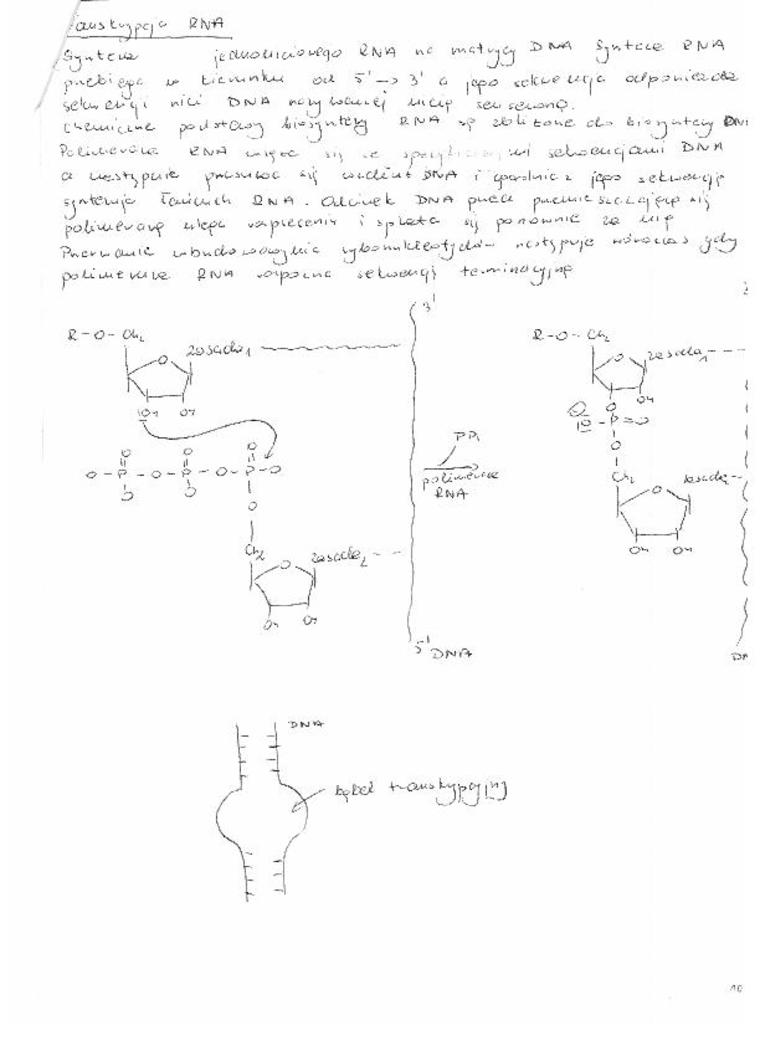 Transkrypcja RNA
Synteza jednoniciowego RNA na matrycy DNA Synteza RNA
przebiega w kierunku od 5' → 3' a jego sekwencja odpowiada
sekwencji nici DNA nazywanej nicią sensowną.
Chemiczne podstawy biosyntezy RNA są zbliżone do biosyntezy DNA
Polimeraza RNA wiąże się ze specyficznymi sekwencjami DNA
a następnie przesuwa się wzdłuż DNA i zgodnie z jego sekwencją
syntezuje łańcuch RNA. Odcinek DNA przed przemieszczającą się
polimerazą ulega rozpleceniu i splata się ponownie za nią
Przerwanie wbudowywania rybonukleotydów następuje wówczas gdy
polimeraza RNA rozpozna sekwencję terminacyjną
3'
R-O-CH2
zasada1
O
OH OH
R-O-CH2
zasada1
O
O OH
O
IO-P=O
O
PPi
polimeraza
RNA
O O O
O-P-O-P-O-P-O
O O O
CH2
zasada2
O
OH OH
CH2
zasada
O
OH OH
5' DNA
DNA
bąbel transkrypcyjny
10